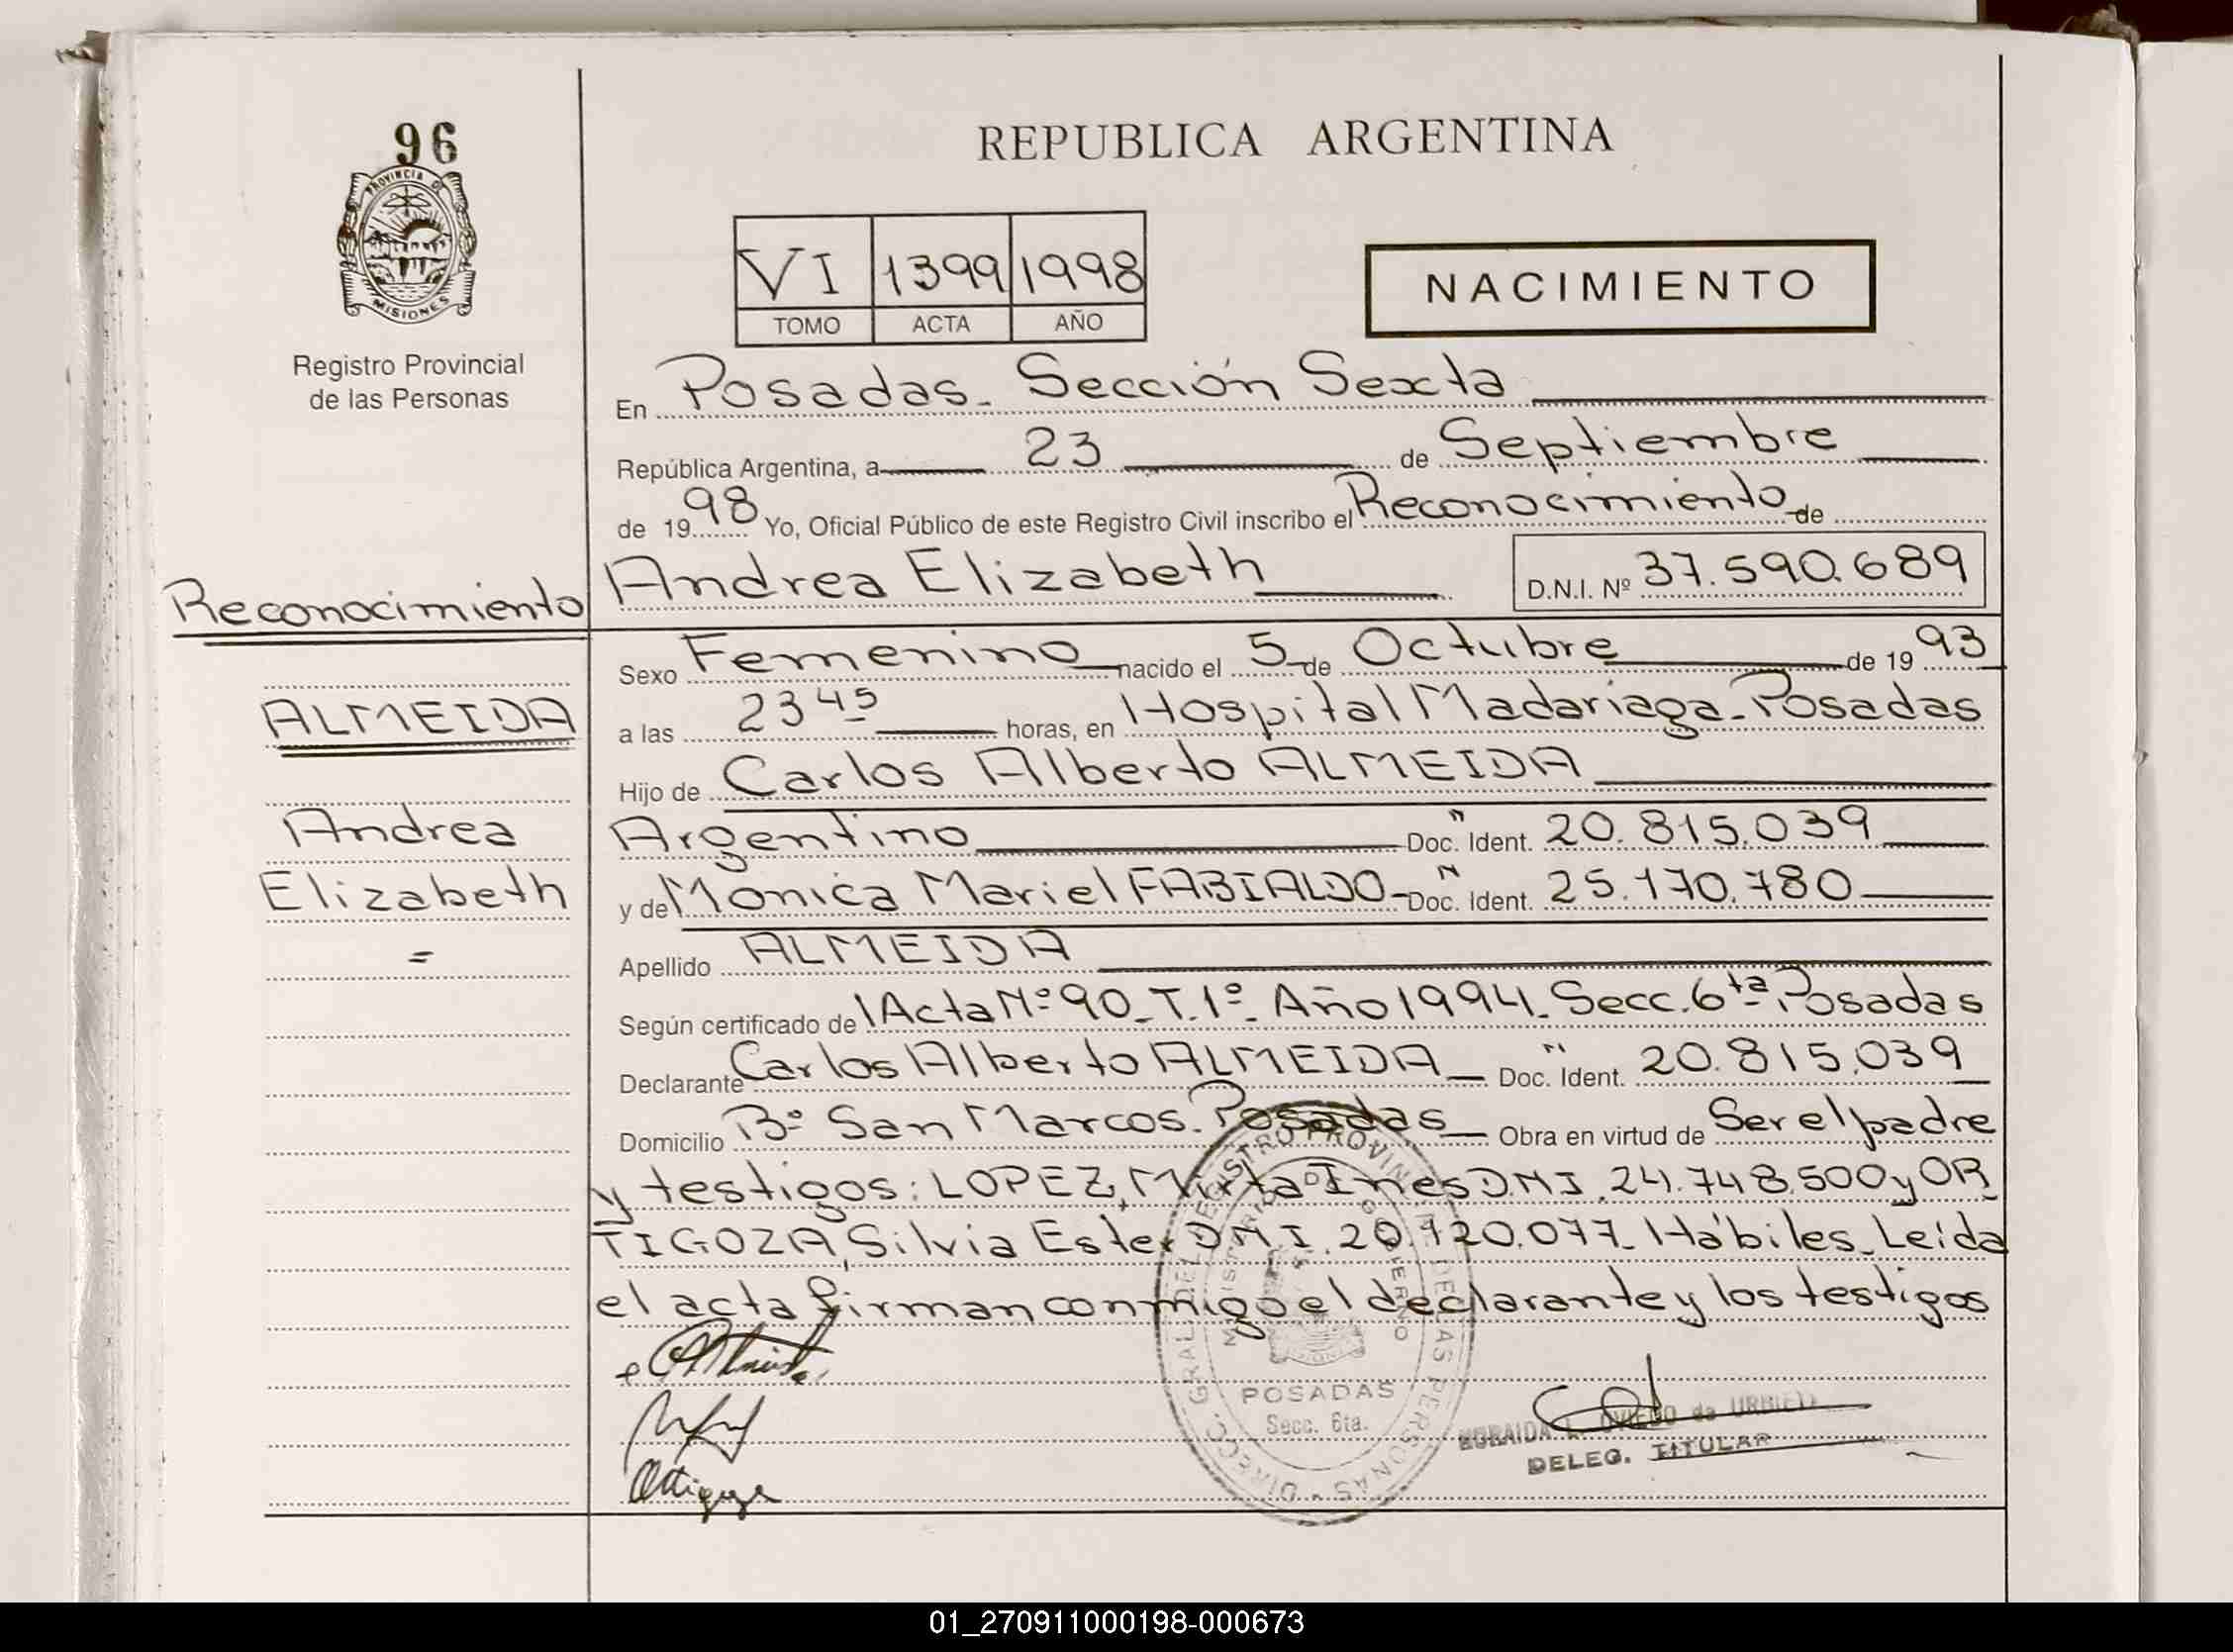 96
PROVINCIA DE
MISIONES
Registro Provincial
de las Personas
Reconocimiento
ALMEIDA
Andrea
Elizabeth
=
REPUBLICA ARGENTINA
VI 1399 1998
TOMO ACTA AÑO
NACIMIENTO
En Posadas. Sección Sexta
República Argentina, a 23 de Septiembre
de 1998 Yo, Oficial Público de este Registro Civil inscribo el Reconocimiento de
Andrea Elizabeth D.N.I. Nº 37.590.689
Sexo Femenino nacido el 5 de Octubre de 1993
a las 23 45 horas, en Hospital Madariaga - Posadas
Hijo de Carlos Alberto ALMEIDA
Argentino Doc. Ident. 20.815.039
y de Monica Mariel FABIALDO - Doc. Ident. 25.170.780
Apellido ALMEIDA
Según certificado de Acta Nº 90 - T. 1º - Año 1994 - Secc. 6ta Posadas
Declarante Carlos Alberto ALMEIDA - Doc. Ident. 20.815.039
Domicilio Bº San Marcos. Posadas - Obra en virtud de Ser el padre
y testigos: LOPEZ, Mirta Ines D.N.I. 24.748.500 y OR
TIGOZA, Silvia Ester D.N.I. 20.120.077 - Hábiles - Leída
el acta firman conmigo el declarante y los testigos
DIRECC. GRAL. DEL REGISTRO PROVINCIAL DE LAS PERSONAS
MINISTERIO DE GOBIERNO
POSADAS
Secc. 6ta.
OVIEDO de
DELEG. TITULAR
01_270911000198-000673